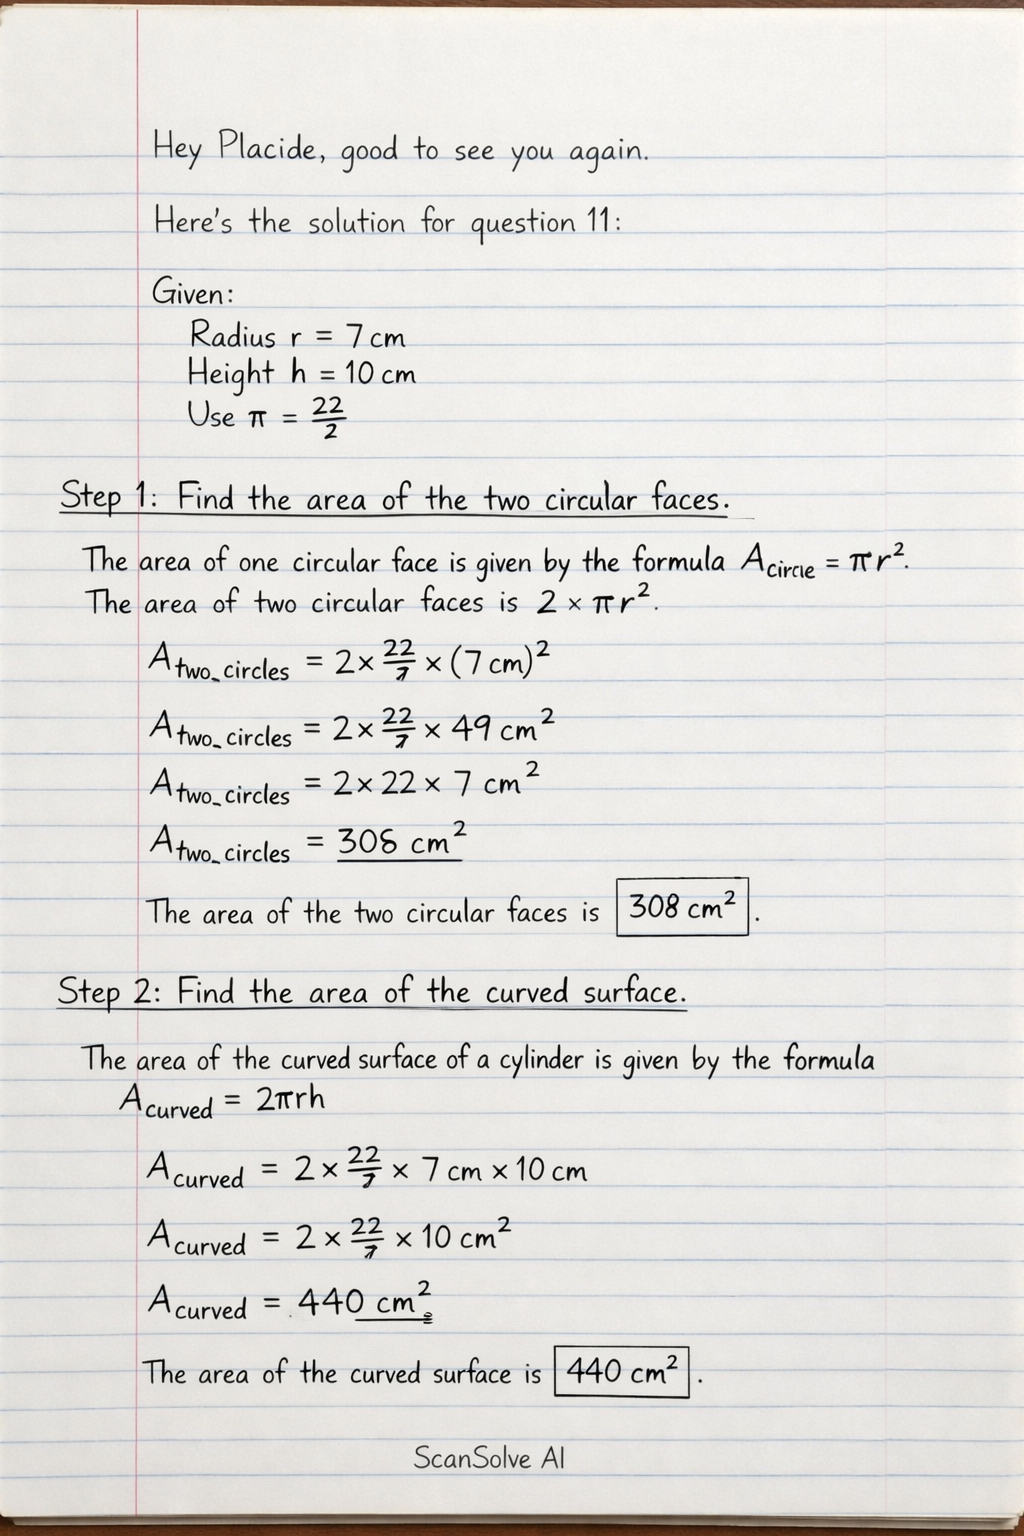 Hey Placide, good to see you again.
Here's the solution for question 11:
Given:
Radius r = 7 cm
Height h = 10 cm
Use π = 22/2
Step 1: Find the area of the two circular faces.
The area of one circular face is given by the formula A_circle = πr².
The area of two circular faces is 2 × πr².
A_two_circles = 2 × 22/7 × (7 cm)²
A_two_circles = 2 × 22/7 × 49 cm²
A_two_circles = 2 × 22 × 7 cm²
A_two_circles = 308 cm²
The area of the two circular faces is 308 cm².
Step 2: Find the area of the curved surface.
The area of the curved surface of a cylinder is given by the formula
A_curved = 2πrh
A_curved = 2 × 22/7 × 7 cm × 10 cm
A_curved = 2 × 22/7 × 10 cm²
A_curved = 440 cm²
The area of the curved surface is 440 cm².
ScanSolve AI